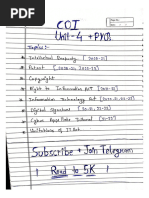 COI
Unit-4 + PYQs
Topics:-
Intellectual Property [2022-23]
Patent [2020-21, 2022-23]
Copyright
Right to Information Act [2022-23]
Information Technology Act [2021-22]
Digital Signature [2021-22, 22-23]
Cyber Appellate Tribunal [2022-23]
Limitations of IT Act
Subscribe + Join Telegram
Road to 5K